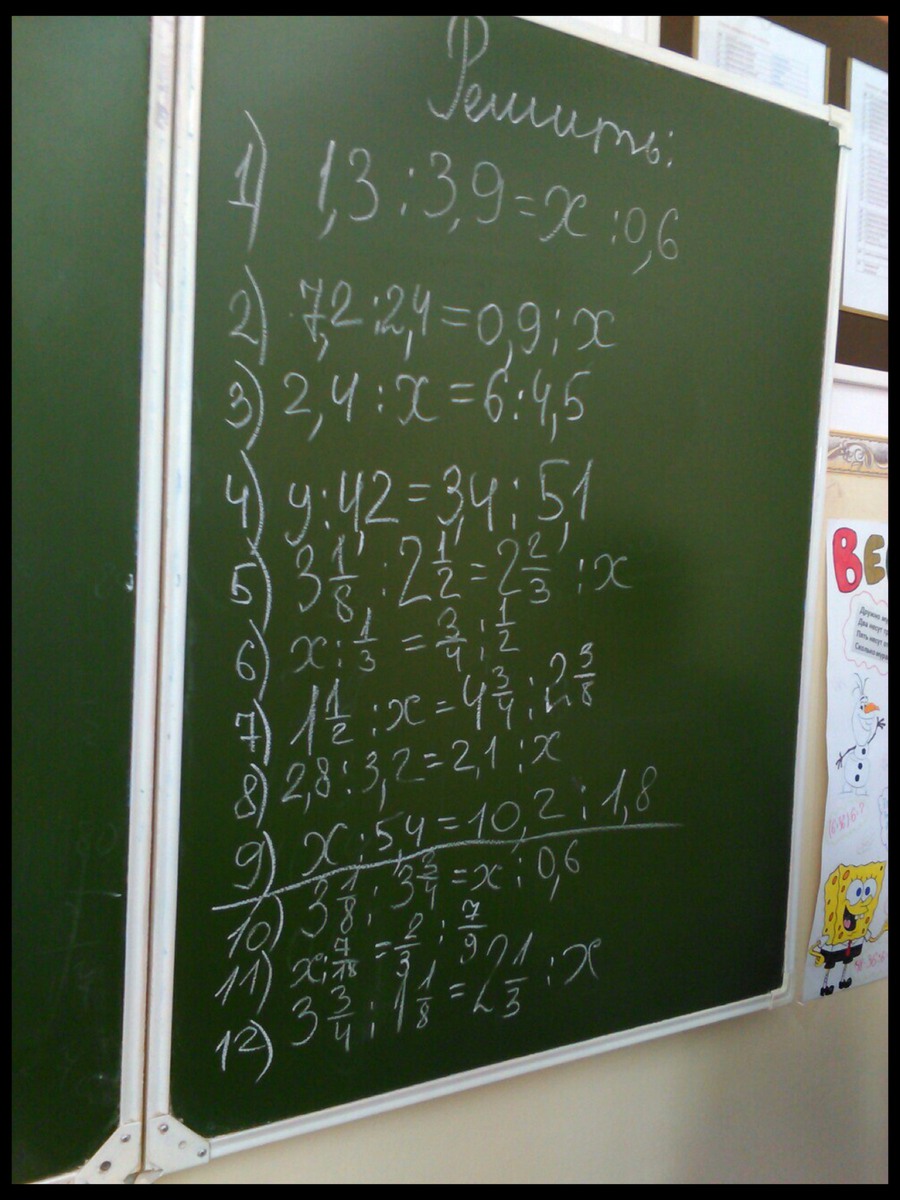 Решить:
1) 1,3 : 3,9 = x : 0,6
2) 7,2 : 2,4 = 0,9 : x
3) 2,4 : x = 6 : 4,5
4) y : 4,2 = 3,4 : 5,1
5) 3 1/8 : 2 1/2 = 2 2/3 : x
6) x : 1/3 = 3/4 : 1/2
7) 1 1/2 : x = 4 3/4 : 2 3/8
8) 2,8 : 3,2 = 2,1 : x
9) x : 5,4 = 10,2 : 1,8
10) 3 1/8 : 3 3/4 = x : 0,6
11) x : 7/18 = 2/3 : 7/9
12) 3 3/4 : 1 1/8 = 2 1/3 : x
ВЕ
Дружно
Два несут
Пять несут
Сколько